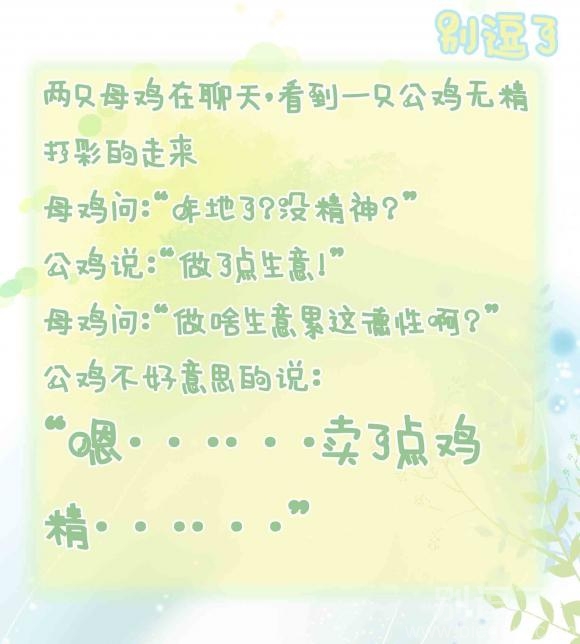 别逗了
两只母鸡在聊天,看到一只公鸡无精
打彩的走来
母鸡问:“咋地了?没精神?”
公鸡说:“做了点生意!”
母鸡问:“做啥生意累这德性啊?”
公鸡不好意思的说:
“嗯······卖了点鸡
精······”